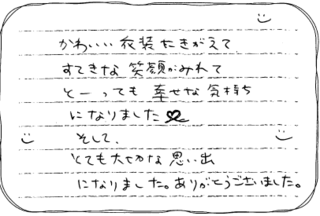 かわいい衣装にきがえて
すてきな笑顔がみれて
とーっても幸せな気持ち
になりました♡
そして、
とても大せつな思い出
になりました。ありがとうございました。